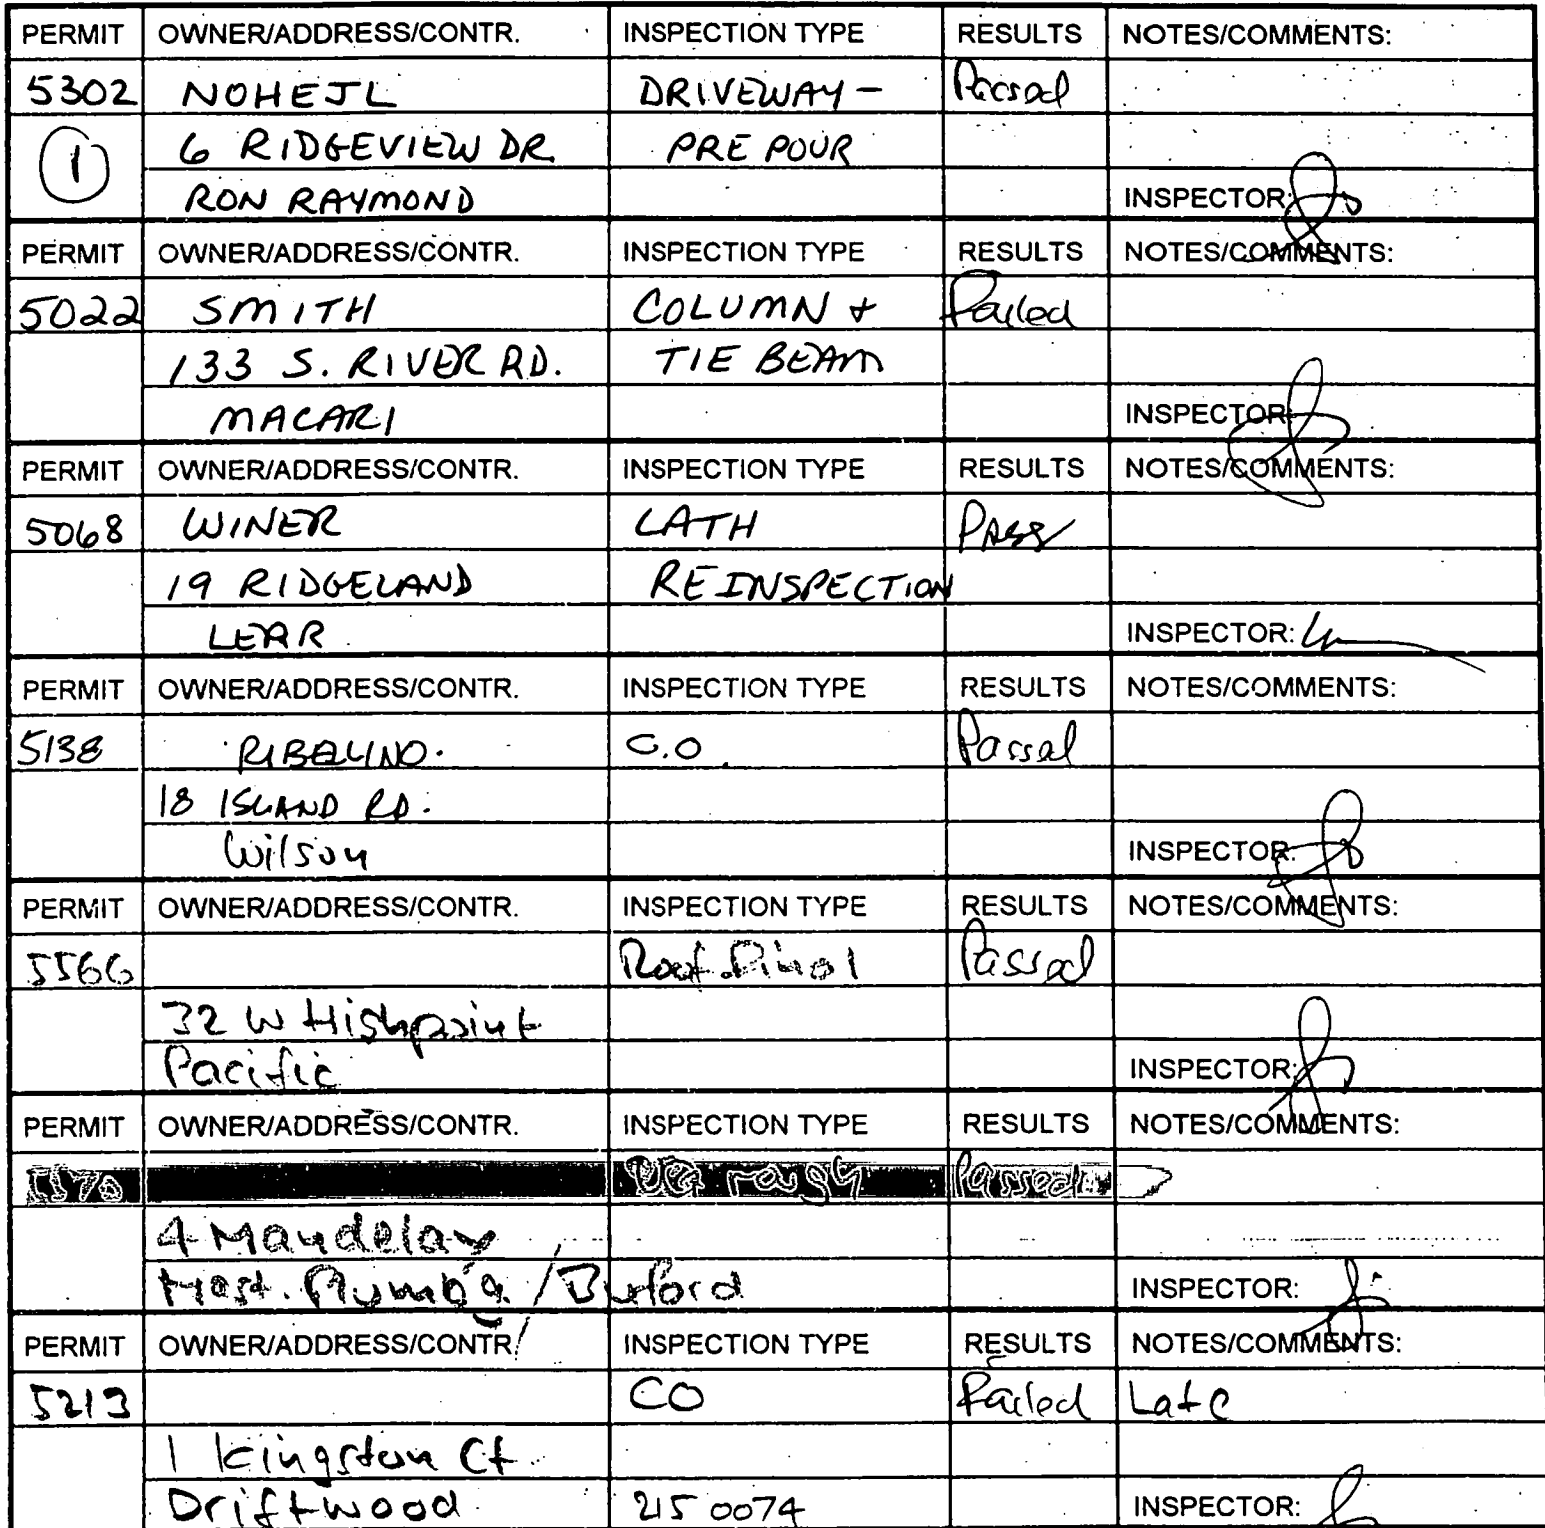 PERMIT OWNER/ADDRESS/CONTR. INSPECTION TYPE RESULTS NOTES/COMMENTS:
5302 NOHEJL DRIVEWAY - Passed
1 6 RIDGEVIEW DR. PRE POUR
RON RAYMOND INSPECTOR:
PERMIT OWNER/ADDRESS/CONTR. INSPECTION TYPE RESULTS NOTES/COMMENTS:
5022 SMITH COLUMN + Failed
133 S. RIVER RD. TIE BEAM
MACARI INSPECTOR:
PERMIT OWNER/ADDRESS/CONTR. INSPECTION TYPE RESULTS NOTES/COMMENTS:
5068 WINER LATH PASS
19 RIDGELAND REINSPECTION
LEAR INSPECTOR:
PERMIT OWNER/ADDRESS/CONTR. INSPECTION TYPE RESULTS NOTES/COMMENTS:
5138 RIBELLINO. C.O. Passed
18 ISLAND RD.
Wilson INSPECTOR:
PERMIT OWNER/ADDRESS/CONTR. INSPECTION TYPE RESULTS NOTES/COMMENTS:
5566 Roof Final Passed
32 W Highpoint
Pacific INSPECTOR:
PERMIT OWNER/ADDRESS/CONTR. INSPECTION TYPE RESULTS NOTES/COMMENTS:
5570 rough Passed
4 Mandelay
Mast. Plumbg. / Buford INSPECTOR:
PERMIT OWNER/ADDRESS/CONTR. INSPECTION TYPE RESULTS NOTES/COMMENTS:
5213 CO Failed Late
1 Kingston Ct
Driftwood 215 0074 INSPECTOR: